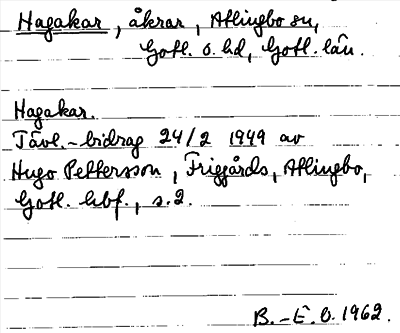 Hagakar, åkrar, Atlingbo sn,
Gotl. s. hd, Gotl. län.
Hagakar.
Tävl.-bidrag 24/2 1949 av
Hugo Pettersson, Friggårds, Atlingbo,
Gotl. hbf., s. 2.
B.-E. O. 1962.